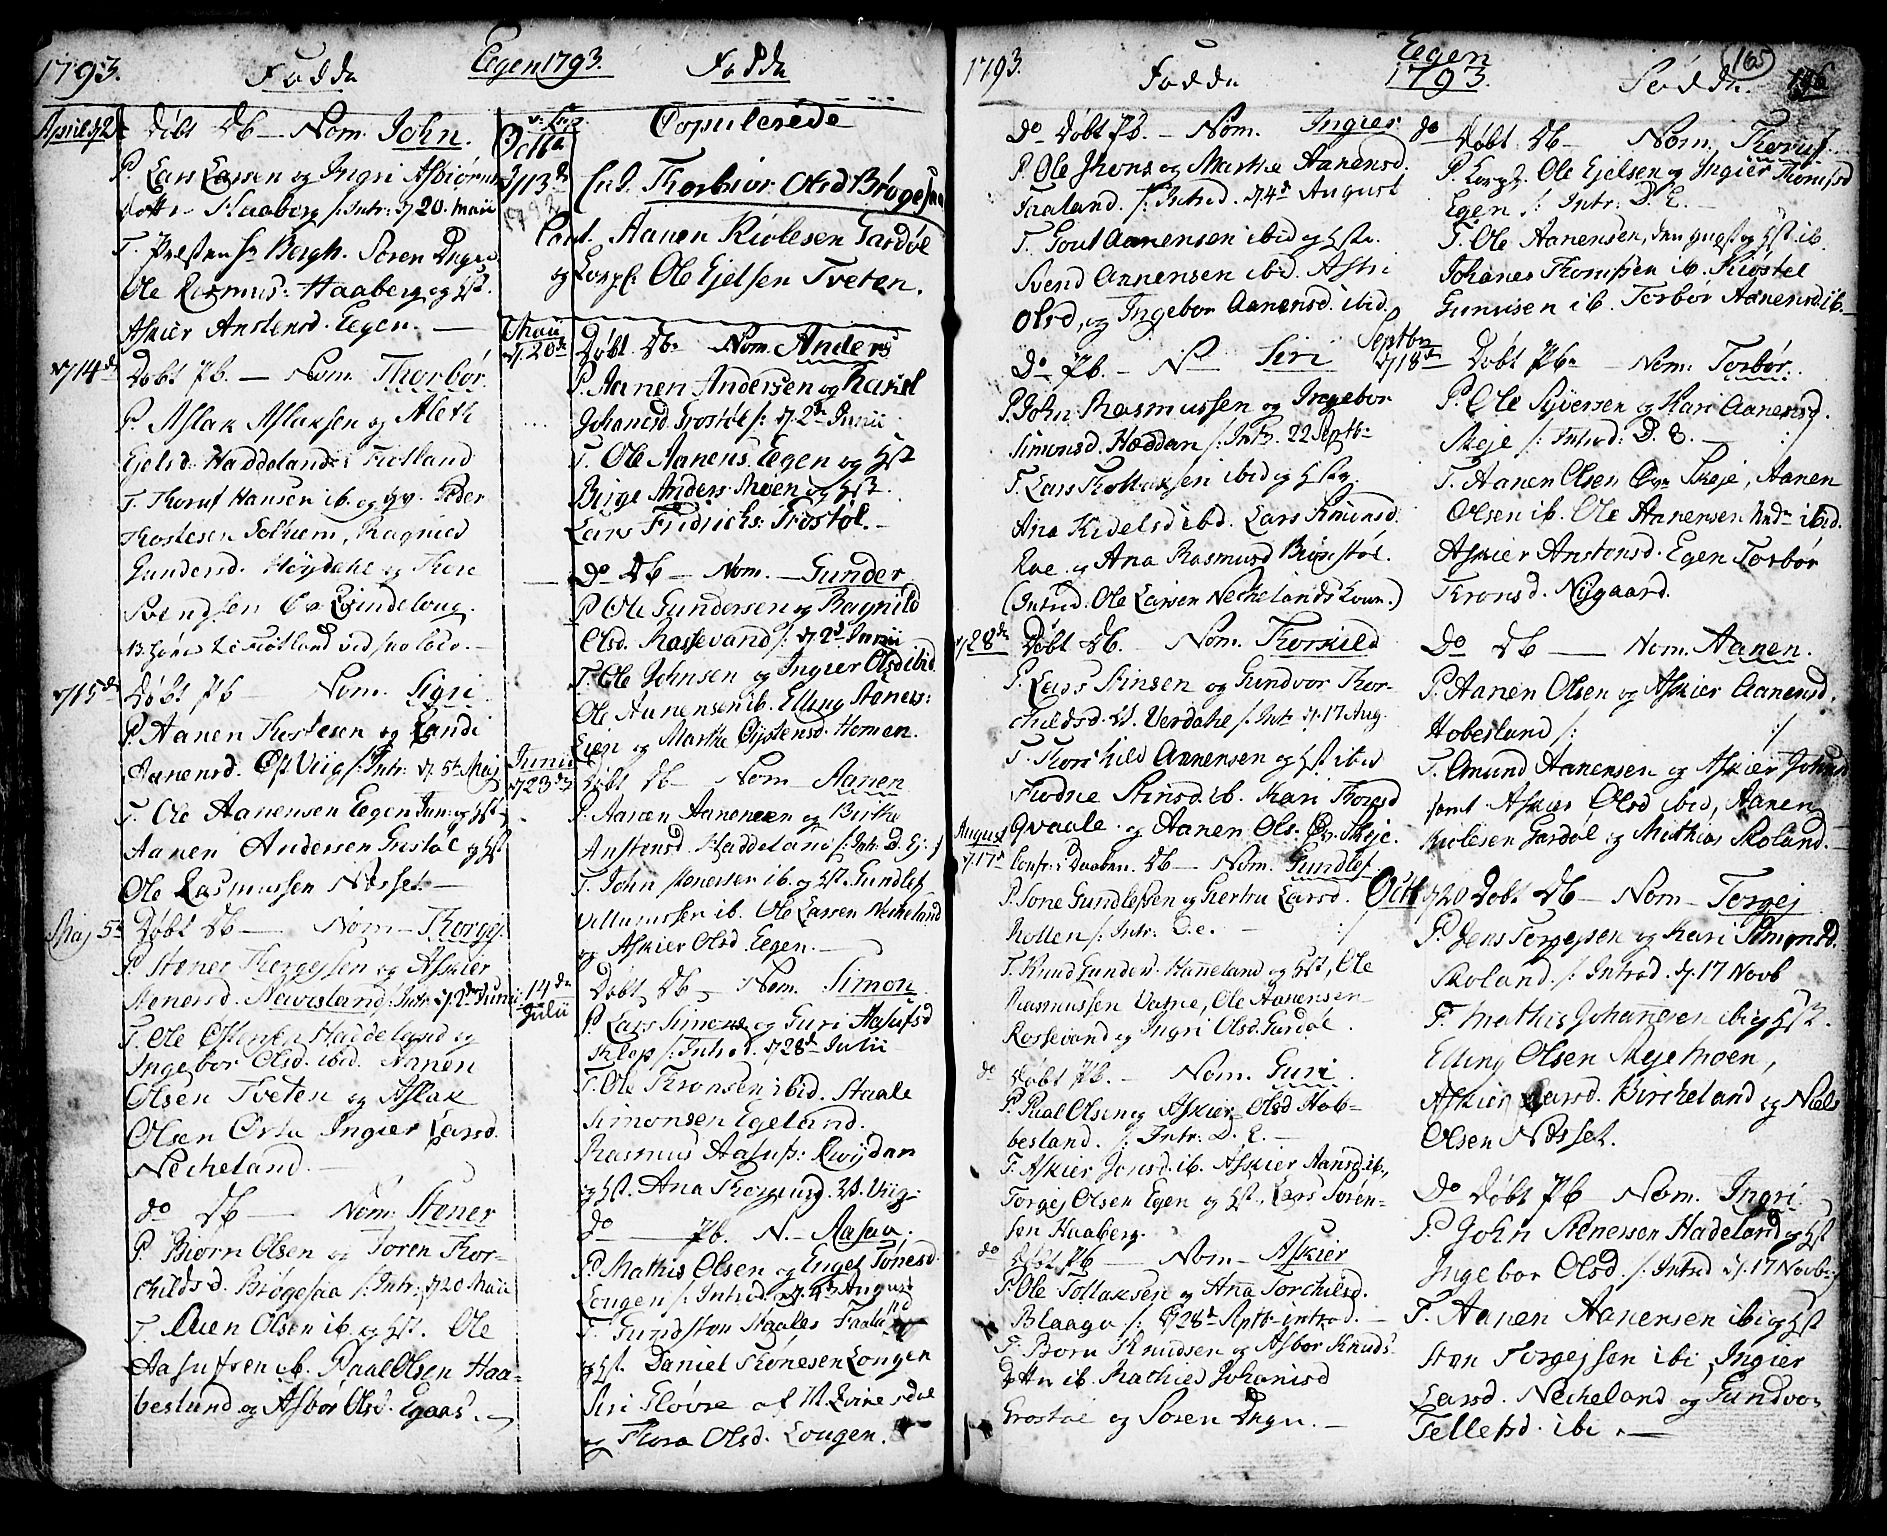 1793. Fødde Egen 1793. Fødde
April 2de Døbt Db – Nom. John.
P. Lars Larsen og Ingri Asbiørns
datt. Haaberg /: Intr: d. 20. Maii
T. Præsten Hr Bergh. Søren Degn
Ole Rasmus: Haaberg og Hst.
Askier Anstensd. Eegen. –
d. 14de Døbt Pb. – Nom. Thorbør.
P. Aslak Aslaksen og Aleth
Ejelsd. Haddeland: Fiotland
T. Thoruf Hansen ib. og Peder
Tostesen Solhiem, Ragnild
Gundersd. Høydahl og Thore
Svendsen Qvindeloug.
d. 15de Døbt Pb – Nom. Sigri
P. Aanen Kestesen og Randi
Aanensd. Øv Viig /: Intr: d. 5te Maj
T. Ole Aanensen Eegen Jun: og Hst
Aanen Andersen Grostøl og Hst
Ole Rasmussen Nesset –
Maj 5te Døbt Db – Nom – Thorgej
P. Stener Thorgejsen og Askier
Stenersd. Navisland /: Intr: d. 2den Junii
T. Ole Ostensen Haddeland og
Ingebor Olsd. ibid. Aanen
Olsen Tveten og Aslak
Olsen Ørta Ingier Larsd.
Necheland. –
do Db – Nom. Stener
P. Biørn Olsen og Soren Thor-
childsd. Brøgesaa /: Intr: d. 20 Maii
T. Auen Olsen ib. og Hst. Ole
Aasufsen ib. Paal Olsen Haa-
besland og Asbør Olsd. Egaas. –
Copulerede
d. 13de
1792
End. Thorbiør Olsd Brøgesaa
Caut. Aanen Kiølesen Gardøl
og Corpl: Ole Ejelsen Tveten.
Maii
d. 20de Døbt Db – Nom. Anders
P. Aanen Andersen og Rakel
Johansd. Grostøl /: d. 2den Junii
T. Ole Aanens. Eegen og Hst
Birge Anders. Moen og Hst.
Lars Fridrichs: Grostøl. –
Do Db – Nom. – Gunder
P. Ole Gundersen og Ragnild
Olsd. Rossevand /: d. 2d. Junii
T. Ole Johnsen og Ingier Olsd ibid
Ole Aanensen ib. Elling Steners:
Eien og Marthe Øystensd. Homen.
Junii
d. 23de Døbt Db – Nom Aanen
P. Aanen Aanensen og Birthe
Anstensd. Haddeland /: Intr: D. Ej: /
T. John Stenersen ib. og Hst. Gundlef
Villumssen ib. Ole Larsen Necheland
og Askier Olsd. Eegen. –
14de
Julii Døbt Db – Nom. Simon
P. Lars Simons. og Guri Aasufsd
Klep /: Introd. d. 28de Julii
T. Ole Thronsen ibid. Staale
Simonsen Egeland.
Rasmus Aasufs: Qvijdan
og Hst. Ana Thorgrimsd. Viig.
do Pb. N. – Aasaa.
P. Mathis Olsen og Engel Tønesd.
Lougen /: Introd. d. 4de August
T. Gundston Staales. Faalad
og Hst. Daniel Thønesen Lougen
Siri Fløvre af N. Qvinesdal
og Thora Olsd. Lougen.
1793. Fødde Eegen 1793. Fødde 165 146
Do Døbt Pb. – Nom. Ingier
P. Ole Jhons og Marthe Aanensd.
Faaland. /: Introd. d. 4de August
T. Gout Aanensen ibid og Hstr.
Svend Aanensen ibid. Astri
Olsd. og Ingebor Aanensd. ibid.
Do Pb. – N – Siri
P. John Rasmussen og Ingebor
Simonsd. Høddan /: Intr. 22 Septb
T. Lars Thollaksen ibid og Hstr
Ana Kidelsd ibd. Lars Simonsd.
Roe og Ana Rasmusd Brønstøl
(Introd. Ole Larsen Nechelands kone.)
d. 28de Døbt Db. – Nom. Thorkild
P. Lars Stinsen og Gundvor Thor-
childsd. N. Verdahl /: Intr d. 17 Aug.
T. Thorkild Annensen og Hst ibid
Frodne Stinsd. ib. Kari Thoresd
Qvaale og Aanen Ols. Øv. Skeje.
August
d. 17de Conf: Daaben. Db – Nom. Gundlef
P. Tone Gundlefsen og Giertru Larsd.
Rollen /: Intr: D. e. – :/
T. Knud Gunders. Hanneland og Hst, Ole
Rasmussen Vatne, Ole Aanensen
Rossevand og Ingri Olsd. Gardøl.
do Døbt Pb. – Nom. Guri
P. Paal Olsen og Askier Olsd Hob-
besland. /: Intr: D. E. –
T. Askier Jonsd. ib. Askier Aansd. ib.,
Torgej Olsen Egen og Hst., Lars Søren-
sen Haaberg.
do Døbt Pb – Nom – Askier
P. Ole Tollaksen og Ana Torchilsd.
Blaaga /: d 28de Septb. introd. –
T. Born Knudsen og Asbor Knuds-
Dtr ib. Mathies Johanisd
Grostøl og Søren Degn. –
do Døbt Db – Nom. Thoruf.
P. Corpl. Ole Ejelsen og Ingier Thomesd
Egen /: Intr: D. E. –
T. Ole Aanensen, den yngst og Hst ib.
Johanes Thomesen ib. Kiøstel
Gunvisen ib. Torbør Aanensd ib. –
Septbr
d. 18de Døbt Pb – Nom: Torbør.
P. Ole Syversen og Kari Aanensd.
Skeje /: Introd: D. E. – :/
T. Aanen Olsen Øvr Skeje, Aanen
Olsen ib. Ole Aanensen Und ibid.
Askier Anstensd. Egen Torbør
Thronsd. Nygaard.
Do Db – Nom. Aanen.
P. Aanen Olsen og Askier Aanensd.
Hobesland /: :/
T. Amund Aanensen og Askier Johnsd
samt Askier Olsd ibid, Aanen
Kiølesen Gardøl og Mathias Skoland. –
Octb d. 20 Døbt Db – Nom – Torgej
P. Jens Torgejsen og Kari Simonsd.
Skoland. /: Introd. d. 17 Novb
T. Mathis Johannesen ibi og Hst.
Elling Olsen Skeje Moen,
Askier Larsd. Bircheland og Niels
Olsen Nesset.
Do Døbt Pb Nom. Ingri
P. John Stenersen Hadeland og Hst
Ingebor Olsd. /: Introd d. 17 Novbr
T. Aanen Aanensen ibi og Hst
Sten Torgejsen ibi, Ingier
Larsd. Necheland og Gundvor
Tellefsd. ibi. –